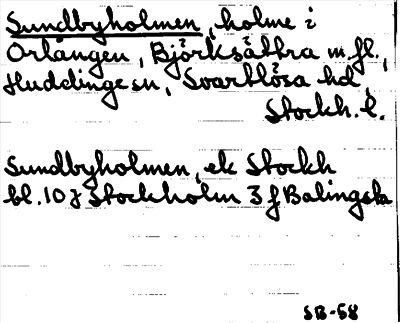 Sundbyholmen, holme i
Orlången, Björksättra m.fl.,
Huddinge sn, Svartlösa hd,
Stockh. l.
Sundbyholmen, ek Stockh
bl. 10 J Stockholm 3 f Balingsta
SB-58